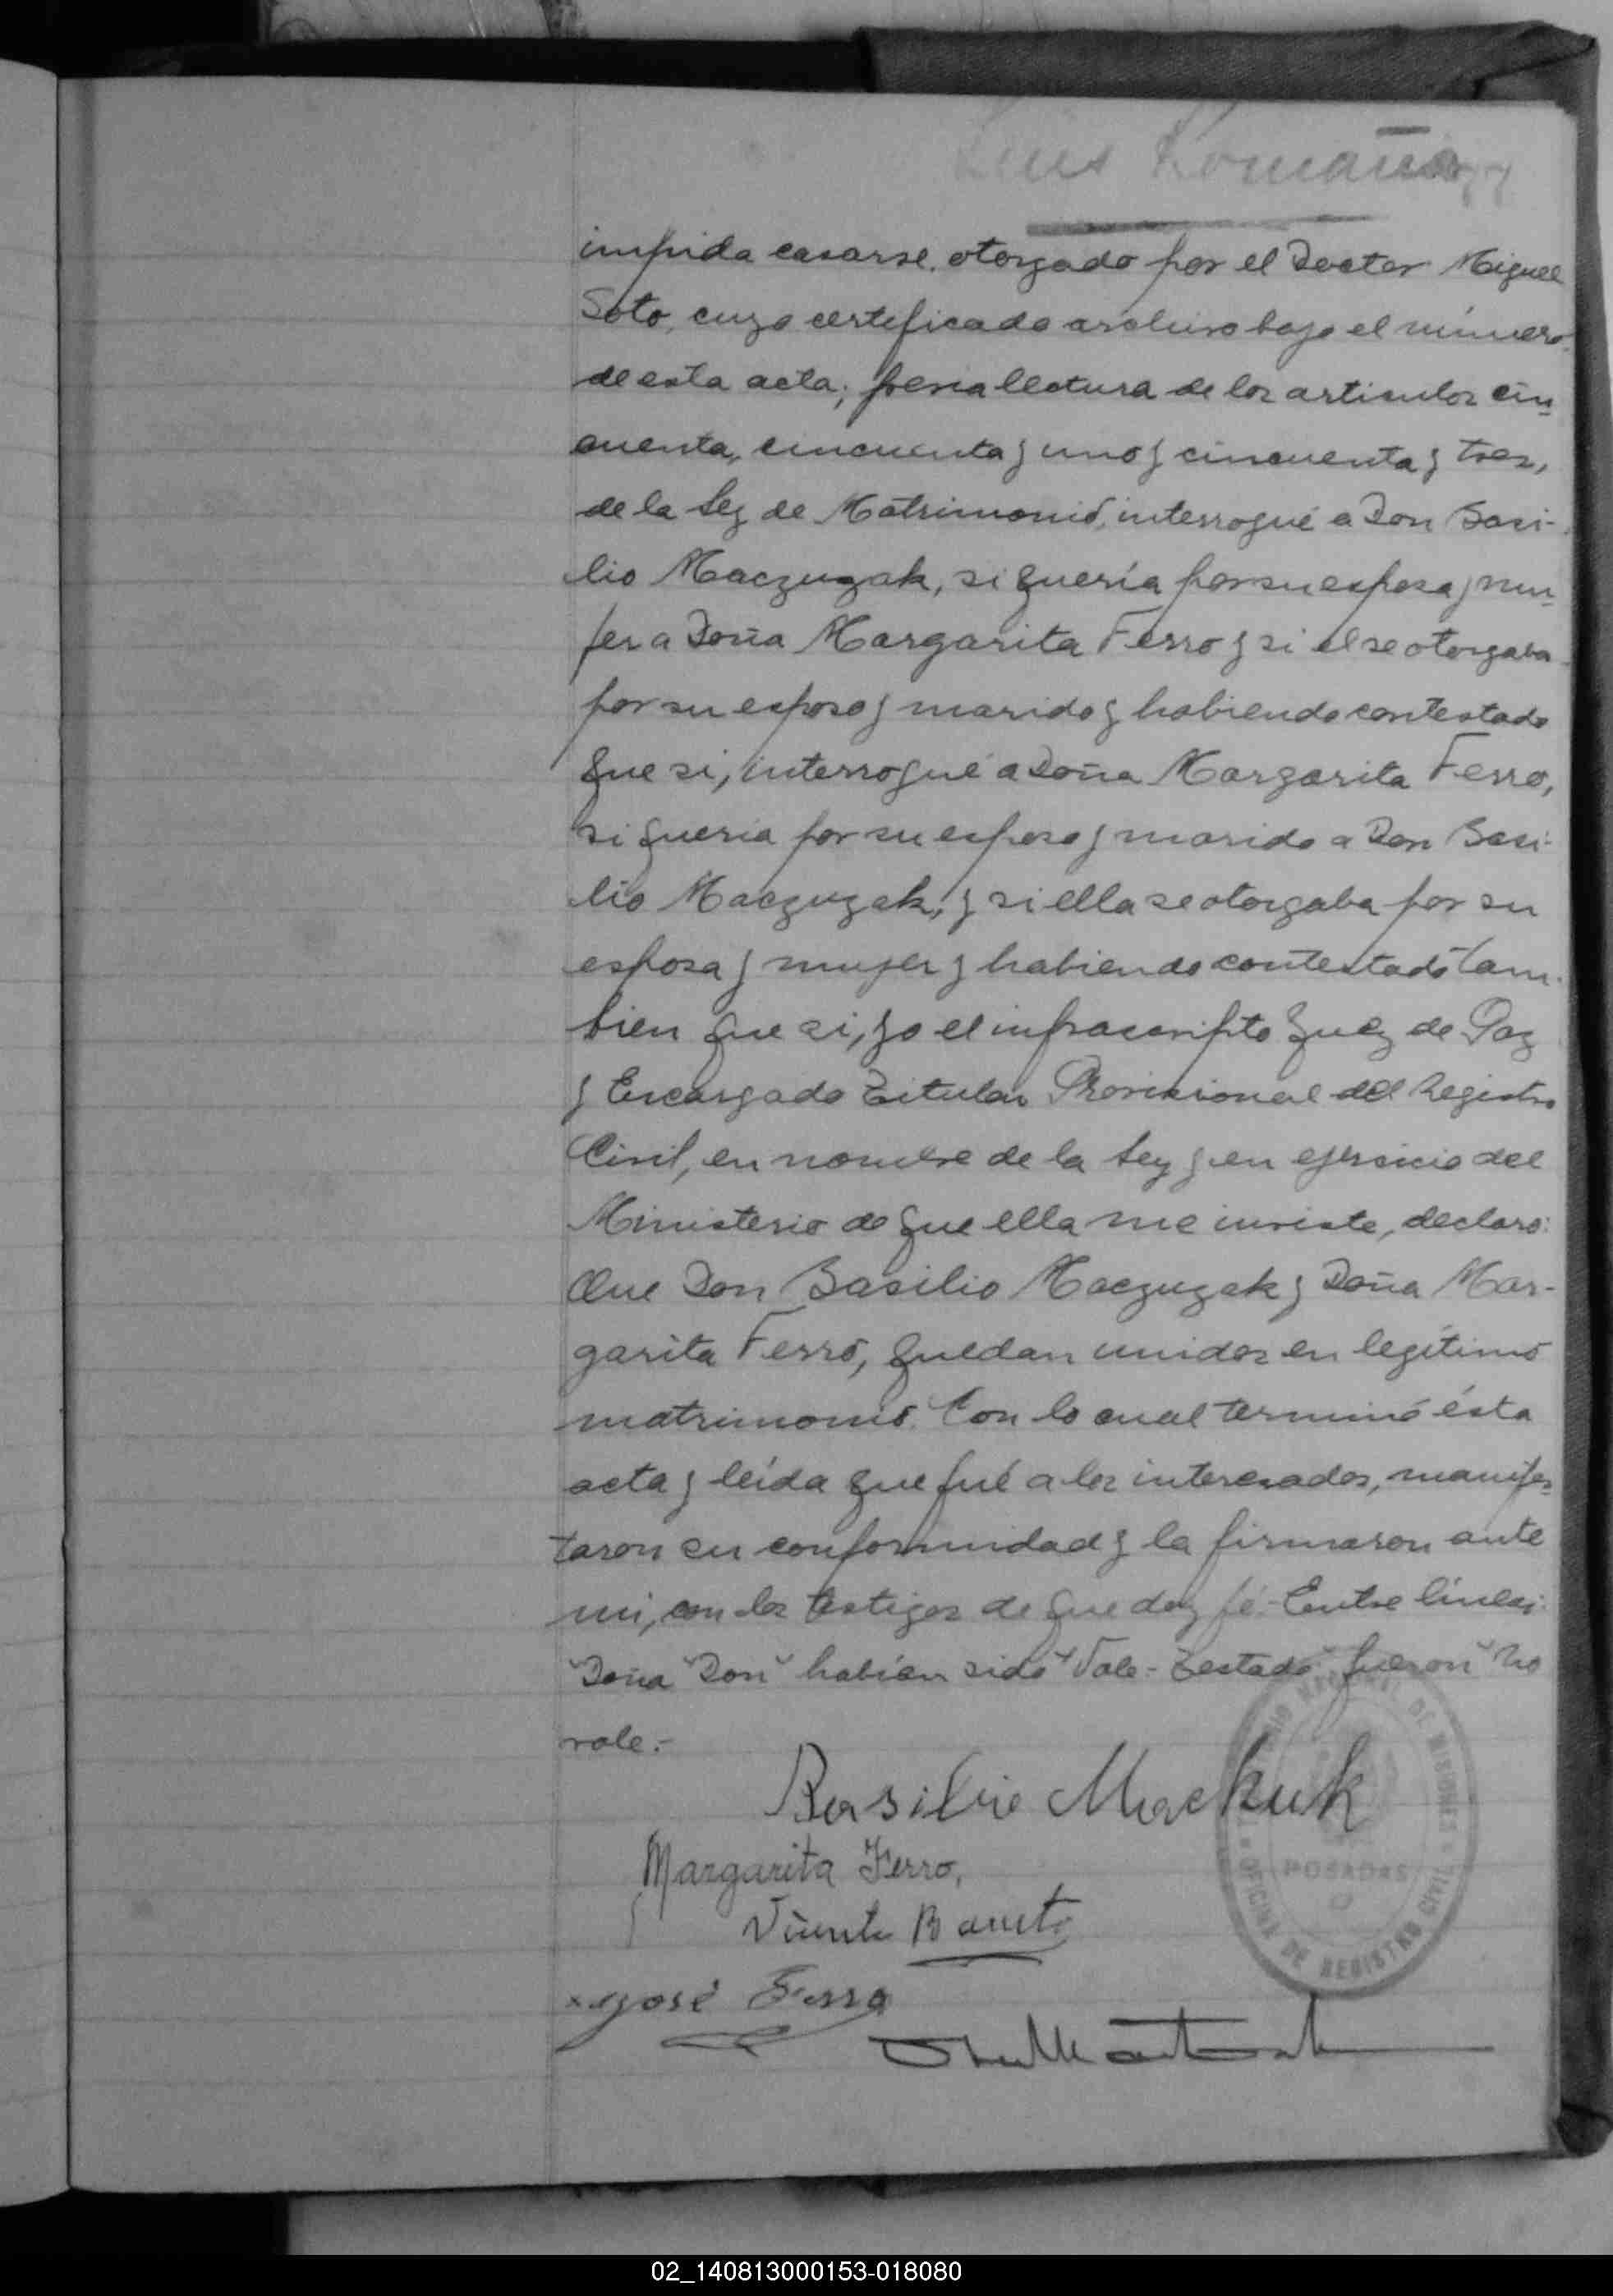 Luis Romaña
impida casarse, otorgado por el Doctor Miguel
Soto, cuyo certificado archivo bajo el número
de esta acta; previa lectura de los articulos cin
cuenta, cincuenta y uno y cincuenta y tres,
de la Ley de Matrimonio, interrogué a Don Basi-
lio Maczuzak, si quería por su esposa y mu
jer a Doña Margarita Ferro y si el se otorgaba
por su esposo y marido y habiendo contestado
que si, interrogué a Doña Margarita Ferro,
si quería por su esposo y marido a Don Basi-
lio Maczuzak, y si ella se otorgaba por su
esposa y mujer y habiendo contestado tam-
bien que si, yo el infrascripto Juez de Paz
y Encargado Titular Provisional del Registro
Civil, en nombre de la Ley y en ejercicio del
Ministerio de que ella me inviste, declaro:
Que Don Basilio Maczuzak y Doña Mar-
garita Ferro, quedan unidos en legítimo
matrimonio. Con lo cual terminó ésta
acta y leída que fué a los interesados, manifes
taron su conformidad y la firmaron ante
mi, con los testigos de que doy fé.- Entre líneas:
"Doña" "Don" habían sido" Vale.- Testado "fueron" No
vale.-
Basilio Mackuk
Margarita Ferro,
Vicente
José Ferro
NACIONAL DE MISIONES
POSADAS
OFICINA DE REGISTRO CIVIL
02_140813000153-018080